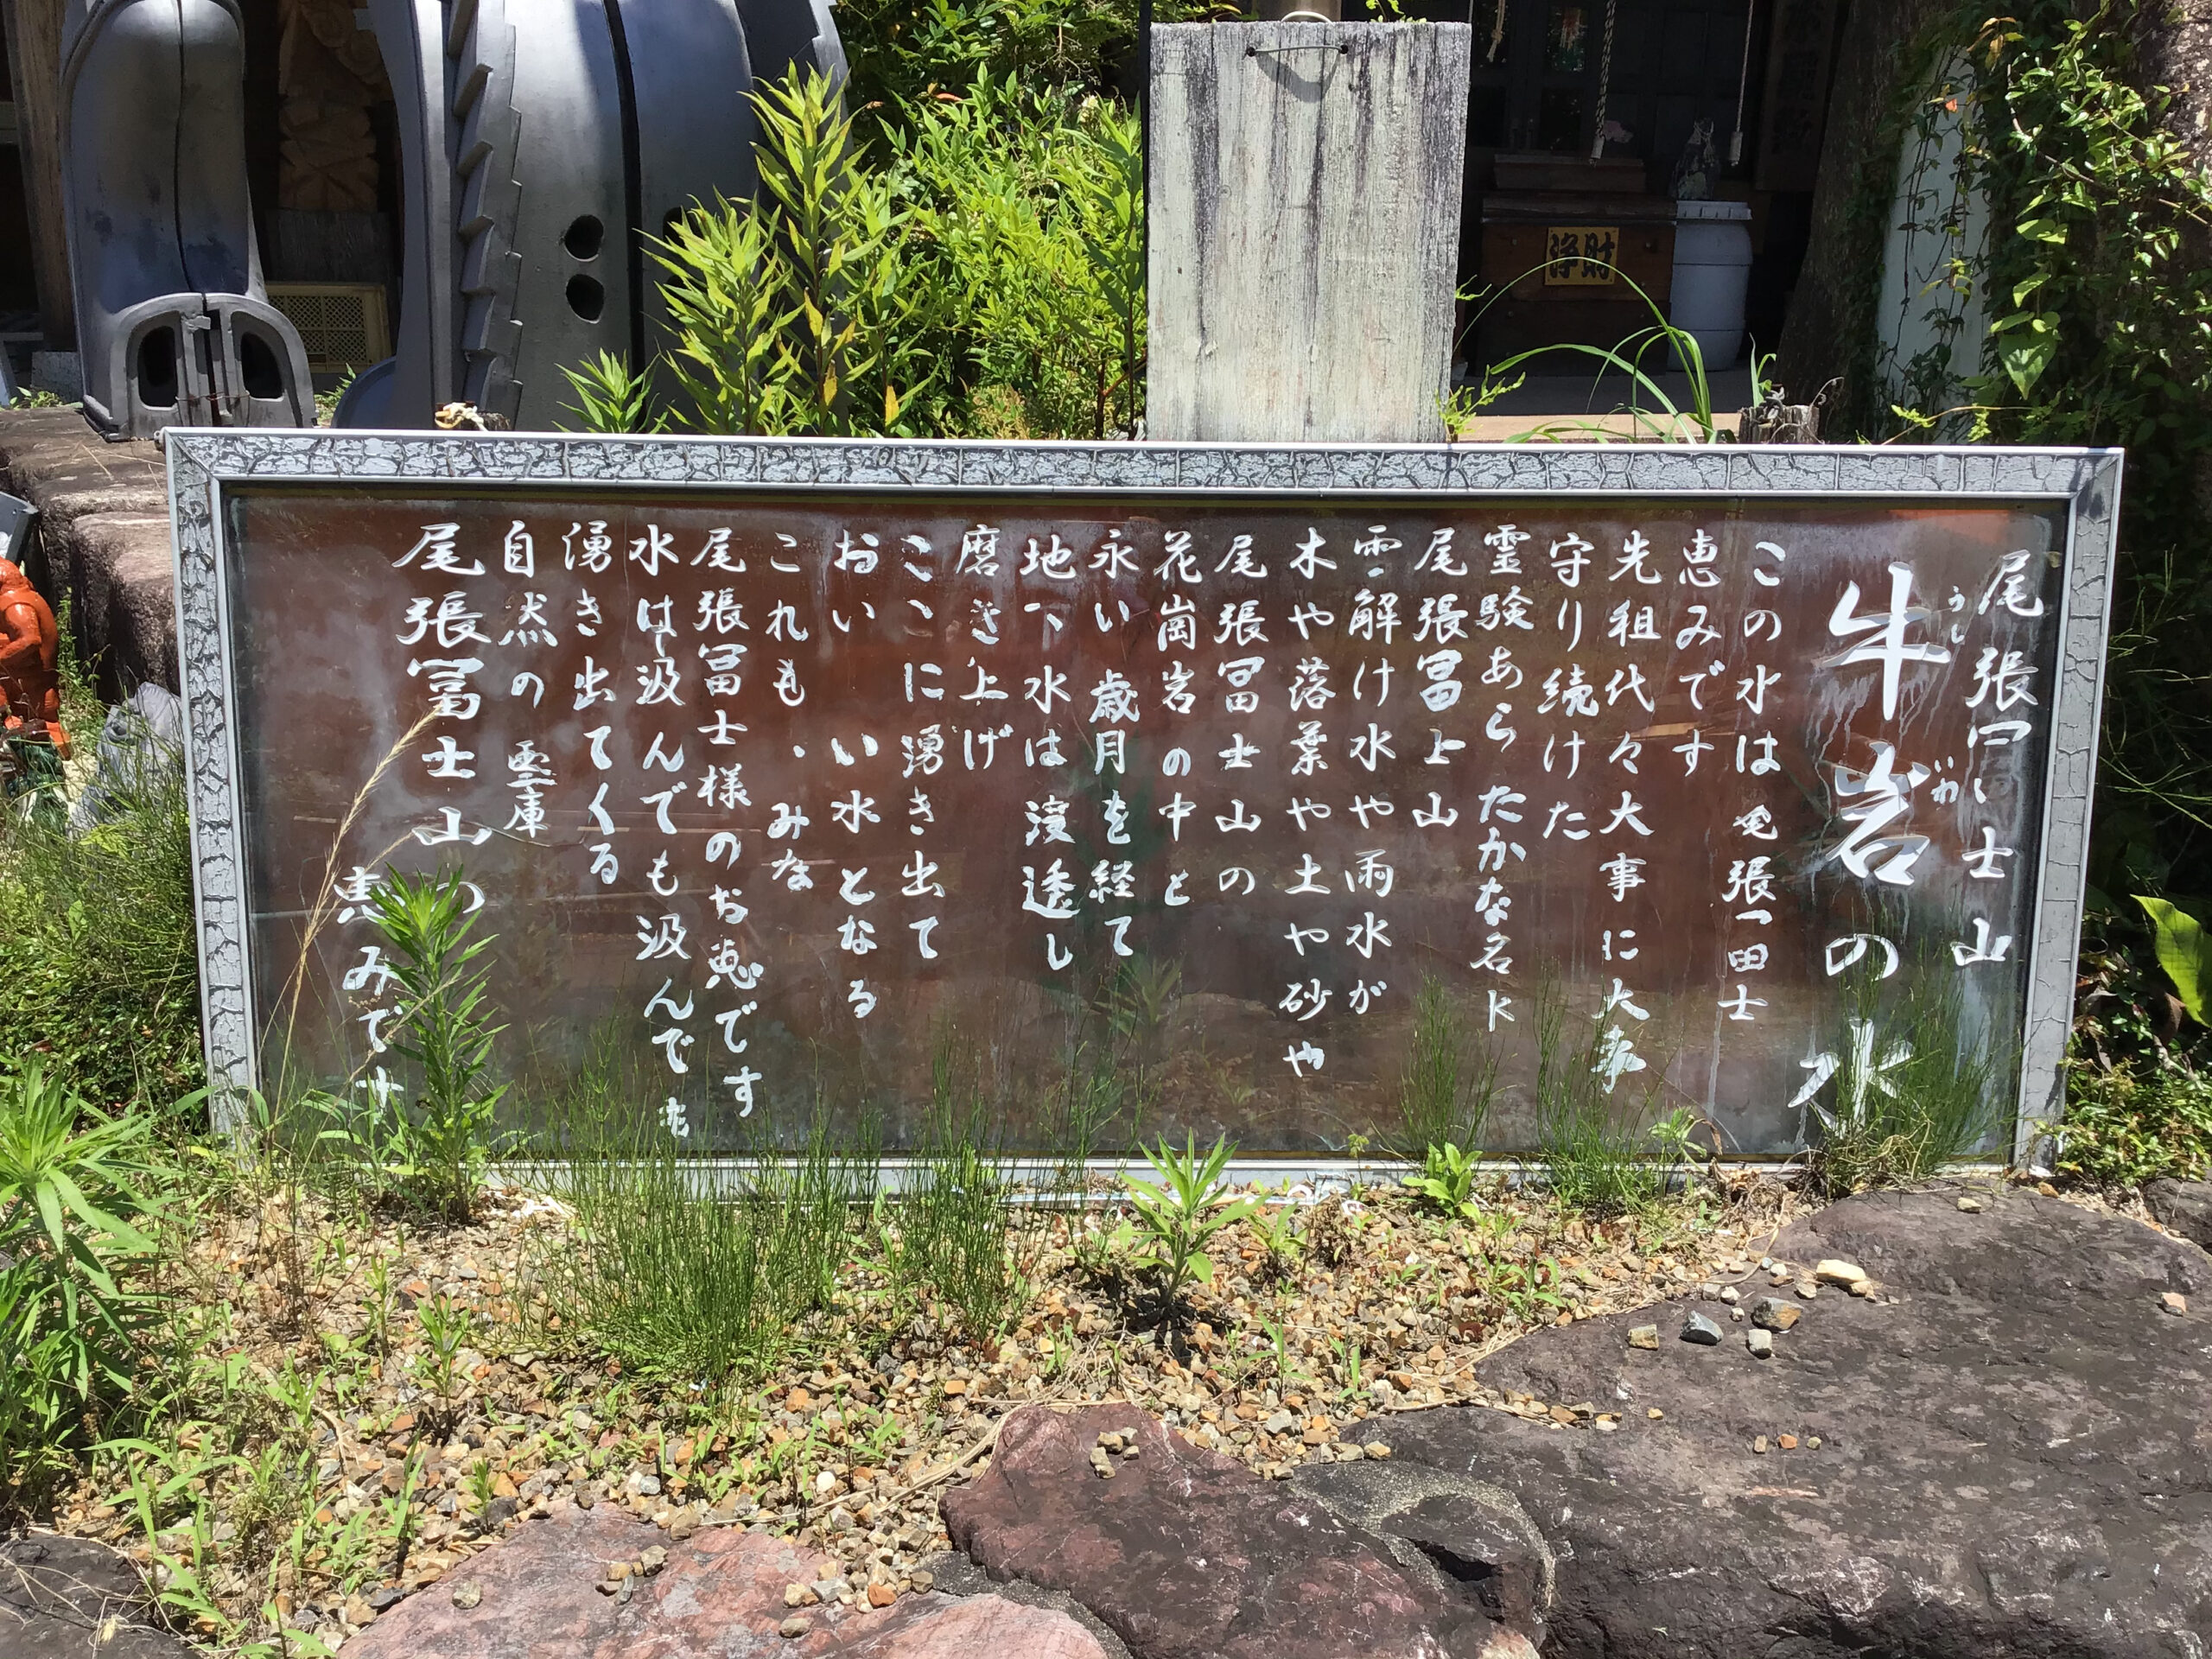 尾張冨士山
牛岩の水
うし いわ
この水は尾張冨士
恵みです
先祖代々大事に大事
守り続けた
霊験あらたかな名水
尾張冨士山
雪解け水や雨水が
木や落葉や土や砂や
尾張冨士山の
花崗岩の中と
永い歳月を経て
地下水は浸透し
磨き上げ
ここに湧き出て
おいしい水となる
これも、みな
尾張冨士様のお恵です
水は汲んでも汲んでも
湧き出てくる
自然の霊庫
尾張冨士山の
恵みです
浄財